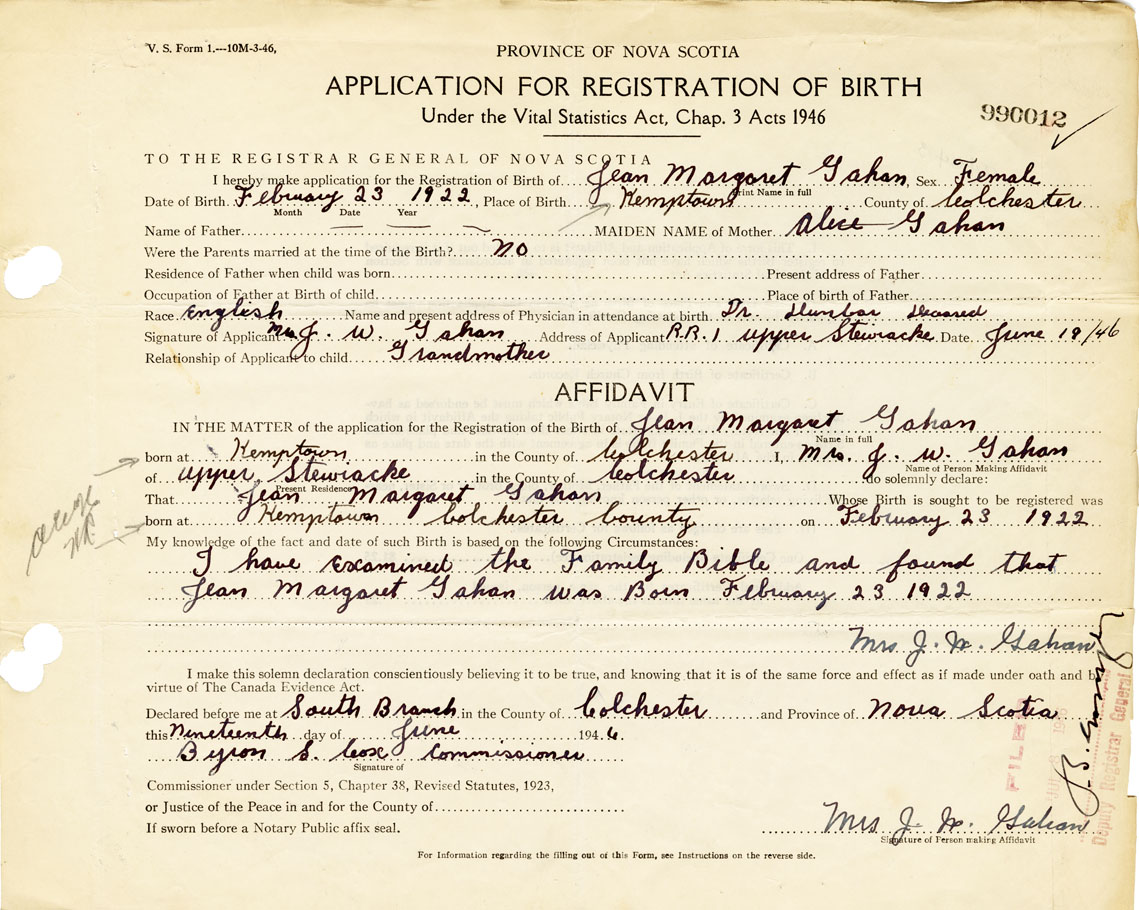 V. S. Form 1.---10M-3-46,
PROVINCE OF NOVA SCOTIA
APPLICATION FOR REGISTRATION OF BIRTH
Under the Vital Statistics Act, Chap. 3 Acts 1946
990012
TO THE REGISTRAR GENERAL OF NOVA SCOTIA
I hereby make application for the Registration of Birth of Jean Margaret Gahan, Sex Female
Print Name in full
Date of Birth February 23 1922, Place of Birth Kemptown County of Colchester
Month Date Year
Name of Father — — — MAIDEN NAME of Mother Alice Gahan
Were the Parents married at the time of the Birth? No
Residence of Father when child was born Present address of Father
Occupation of Father at Birth of child Place of birth of Father
Race English Name and present address of Physician in attendance at birth. Dr. Dunbar Deceased
Signature of Applicant Mrs J. W. Gahan Address of Applicant R.R. 1 Upper Stewiacke Date June 19/46
Relationship of Applicant to child Grandmother
AFFIDAVIT
IN THE MATTER of the application for the Registration of the Birth of Jean Margaret Gahan
Name in full
born at Kemptown in the County of Colchester I, Mrs. J. W. Gahan
Name of Person Making Affidavit
of Upper Stewiacke in the County of Colchester do solemnly declare:
Present Residence
That Jean Margaret Gahan Whose Birth is sought to be registered was
born at Kemptown Colchester County on February 23 1922
My knowledge of the fact and date of such Birth is based on the following Circumstances:
I have examined the Family Bible and found that
Jean Margaret Gahan was Born February 23 1922
Mrs J. W. Gahan
I make this solemn declaration conscientiously believing it to be true, and knowing that it is of the same force and effect as if made under oath and by
virtue of The Canada Evidence Act.
Declared before me at South Branch in the County of Colchester and Province of Nova Scotia
this Nineteenth day of June 1946
Byron S. Cox Commissioner
Signature of
Commissioner under Section 5, Chapter 38, Revised Statutes, 1923,
or Justice of the Peace in and for the County of
If sworn before a Notary Public affix seal.
Mrs J. W. Gahan
Signature of Person making Affidavit
For Information regarding the filling out of this Form, see Instructions on the reverse side.
FILED
Deputy Registrar General